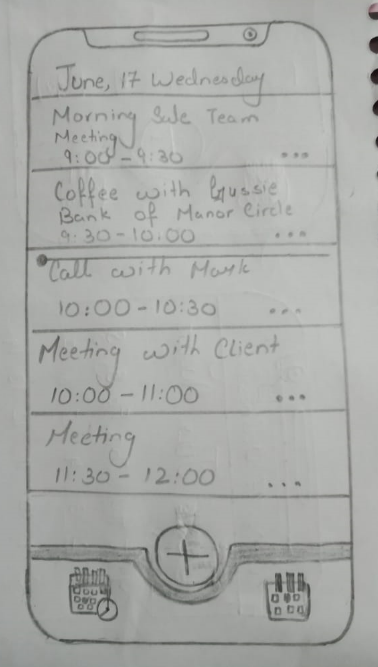 June, 17 Wednesday
Morning Sale Team
Meeting
9:00-9:30
...
Coffee with Gussie
Bank of Manor Circle
9:30-10:00
...
Call with Mark
10:00-10:30
...
Meeting with Client
10:00-11:00
...
Meeting
11:30-12:00
...
+